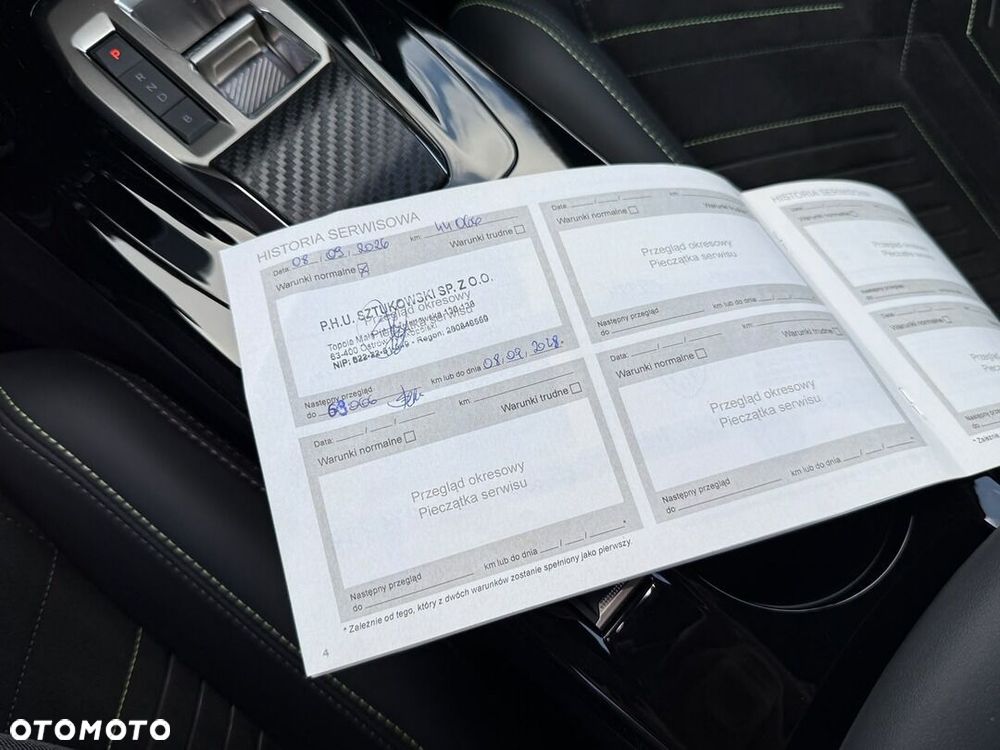 P
R
N
D
B
HISTORIA SERWISOWA
Data: 08 . 09 . 2026 km: 44 066
Warunki normalne Warunki trudne
P.H.U. SZTUKOWSKI SP. Z O.O.
Przegląd okresowy
Pieczątka serwisu
Topola Mała
63-400 Ostrów
NIP: 622- Regon:
Następny przegląd
do 69066 km lub do dnia 08.09.2028.
Data: / / km:
Warunki normalne Warunki trudne
Przegląd okresowy
Pieczątka serwisu
Następny przegląd
do km lub do dnia / / *
* Zależnie od tego, który z dwóch warunków zostanie spełniony jako pierwszy.
4
Data: / / km:
Warunki normalne Warunki trudne
Przegląd okresowy
Pieczątka serwisu
Następny przegląd
do km lub do dnia / /
Data: / / km:
Warunki normalne Warunki trudne
Przegląd okresowy
Pieczątka serwisu
Następny przegląd
do km lub do dnia / / *
HISTORIA SERWISOWA
Data:
Warunki normalne
Przegląd okresowy
Pieczątka serwisu
Następny przegląd
do
Data:
Warunki normalne
Następny przegląd
do
* Zależnie
OTOMOTO